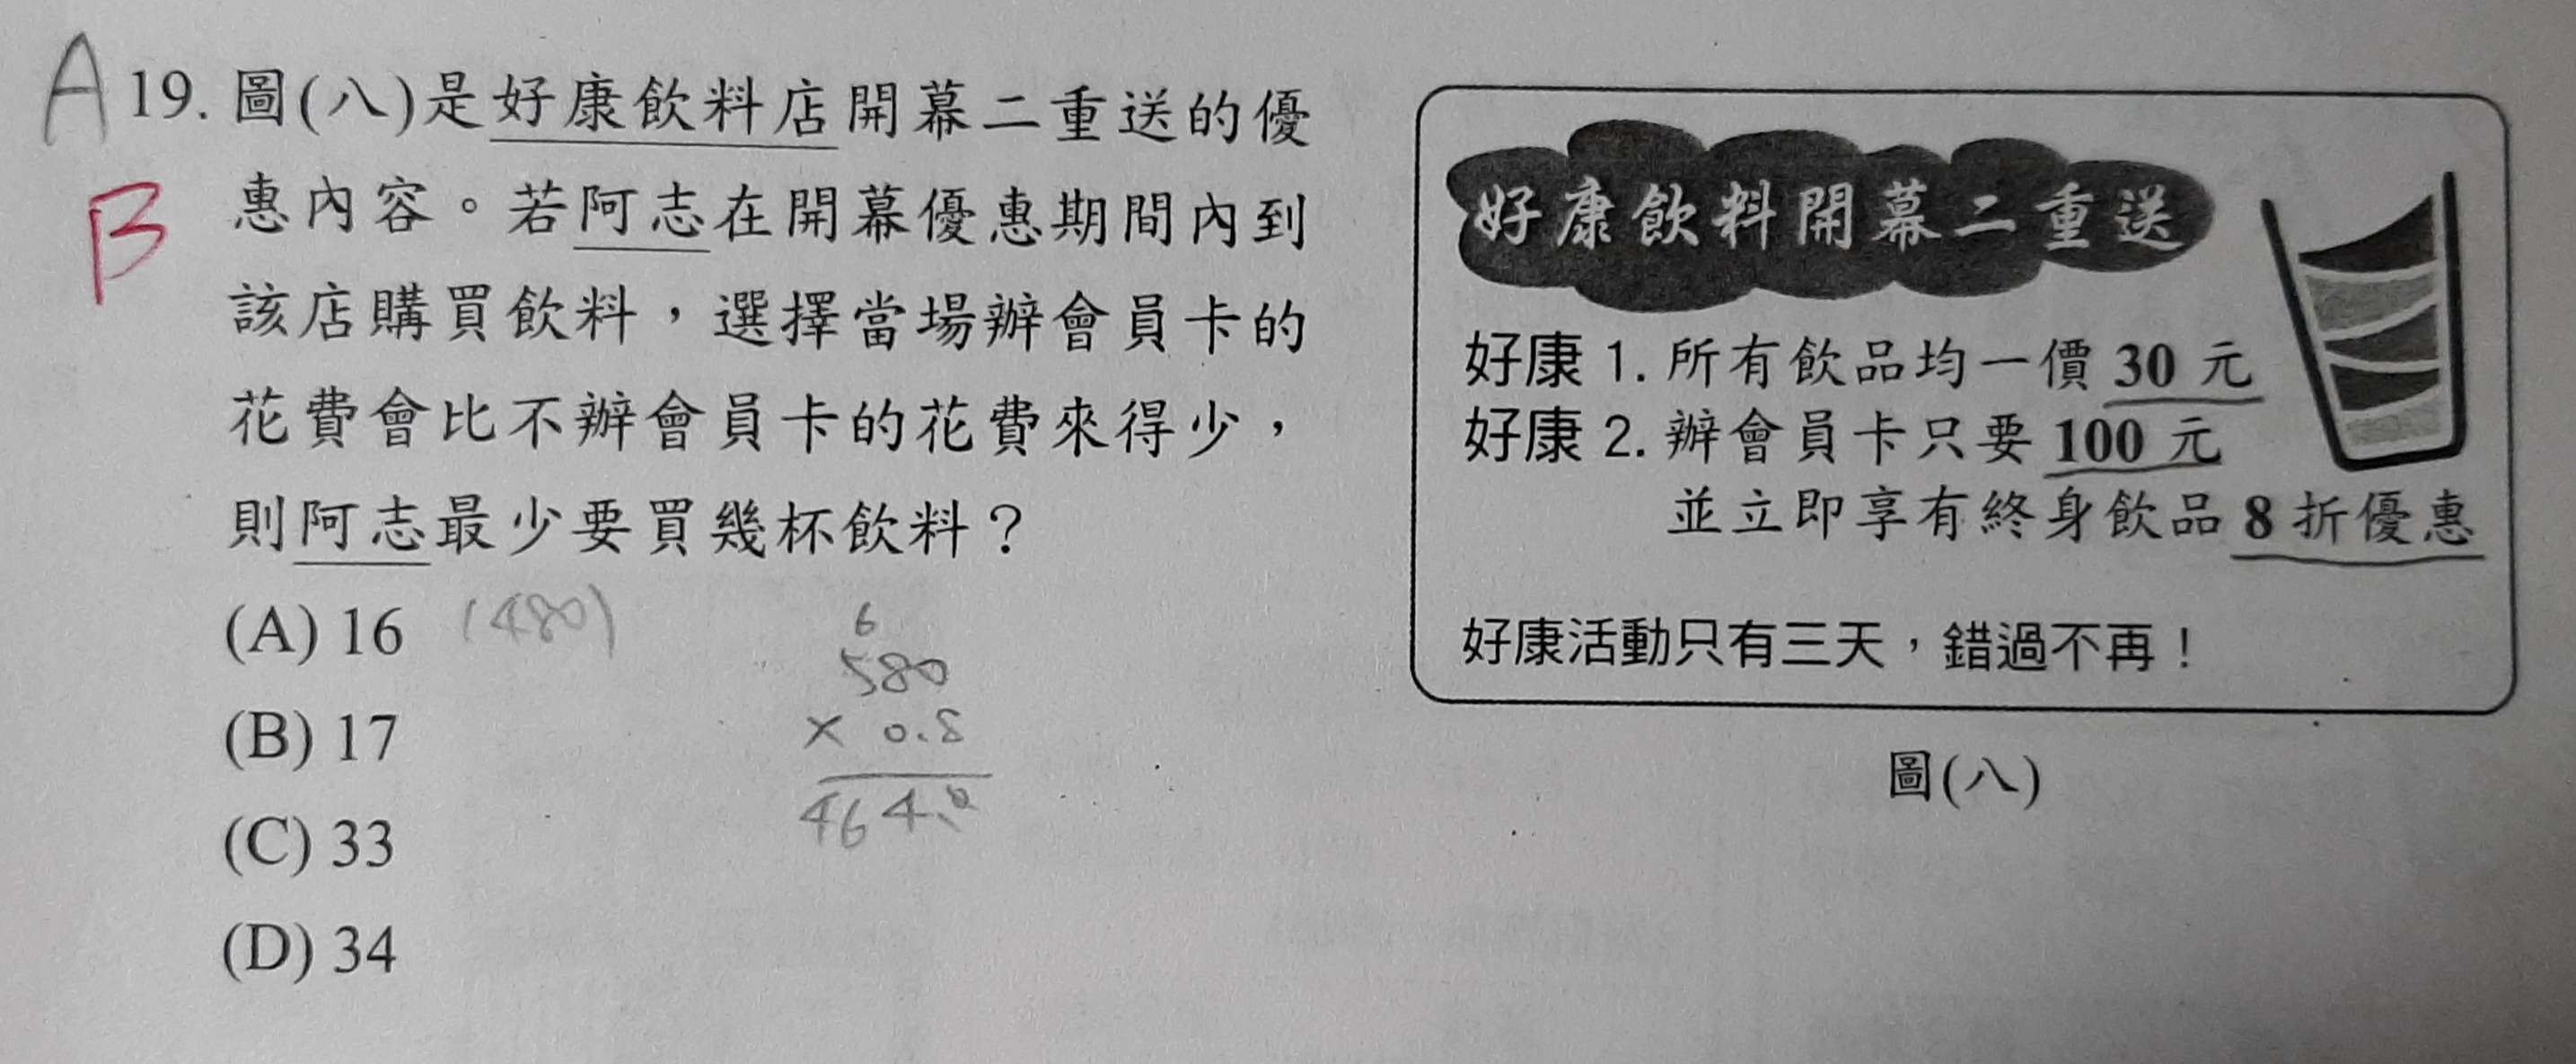 A 19. 圖(八)是好康飲料店開幕二重送的優
B 惠內容。若阿志在開幕優惠期間內到
該店購買飲料，選擇當場辦會員卡的
花費會比不辦會員卡的花費來得少，
則阿志最少要買幾杯飲料？
(A) 16 (480)
(B) 17
(C) 33
(D) 34
6
580
× 0.8
464.0
好康飲料開幕二重送
好康 1. 所有飲品均一價 30 元
好康 2. 辦會員卡只要 100 元
並立即享有終身飲品 8 折優惠
好康活動只有三天，錯過不再！
圖(八)